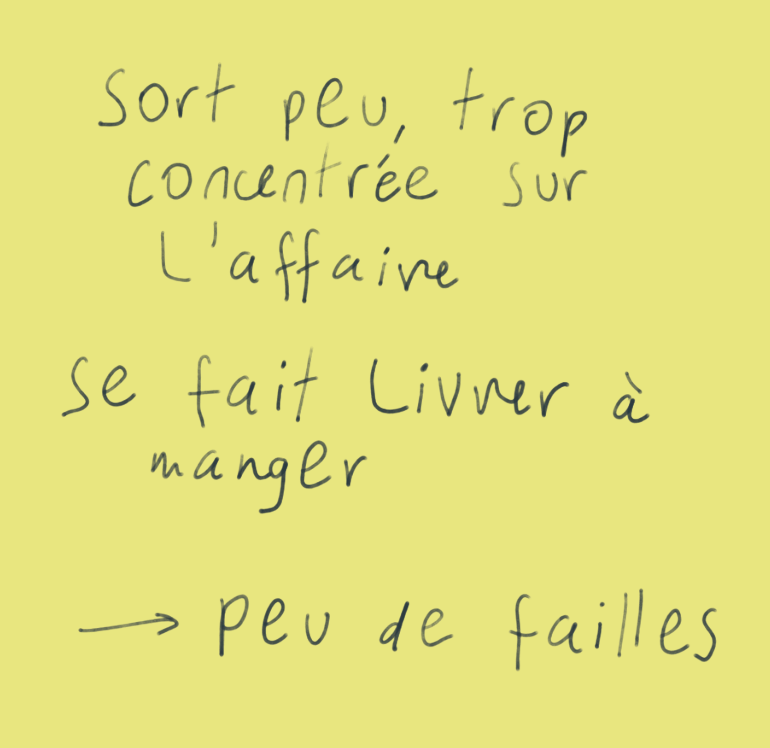 Sort peu, trop
concentrée sur
L'affaire
Se fait Livrer à
manger
→ peu de failles